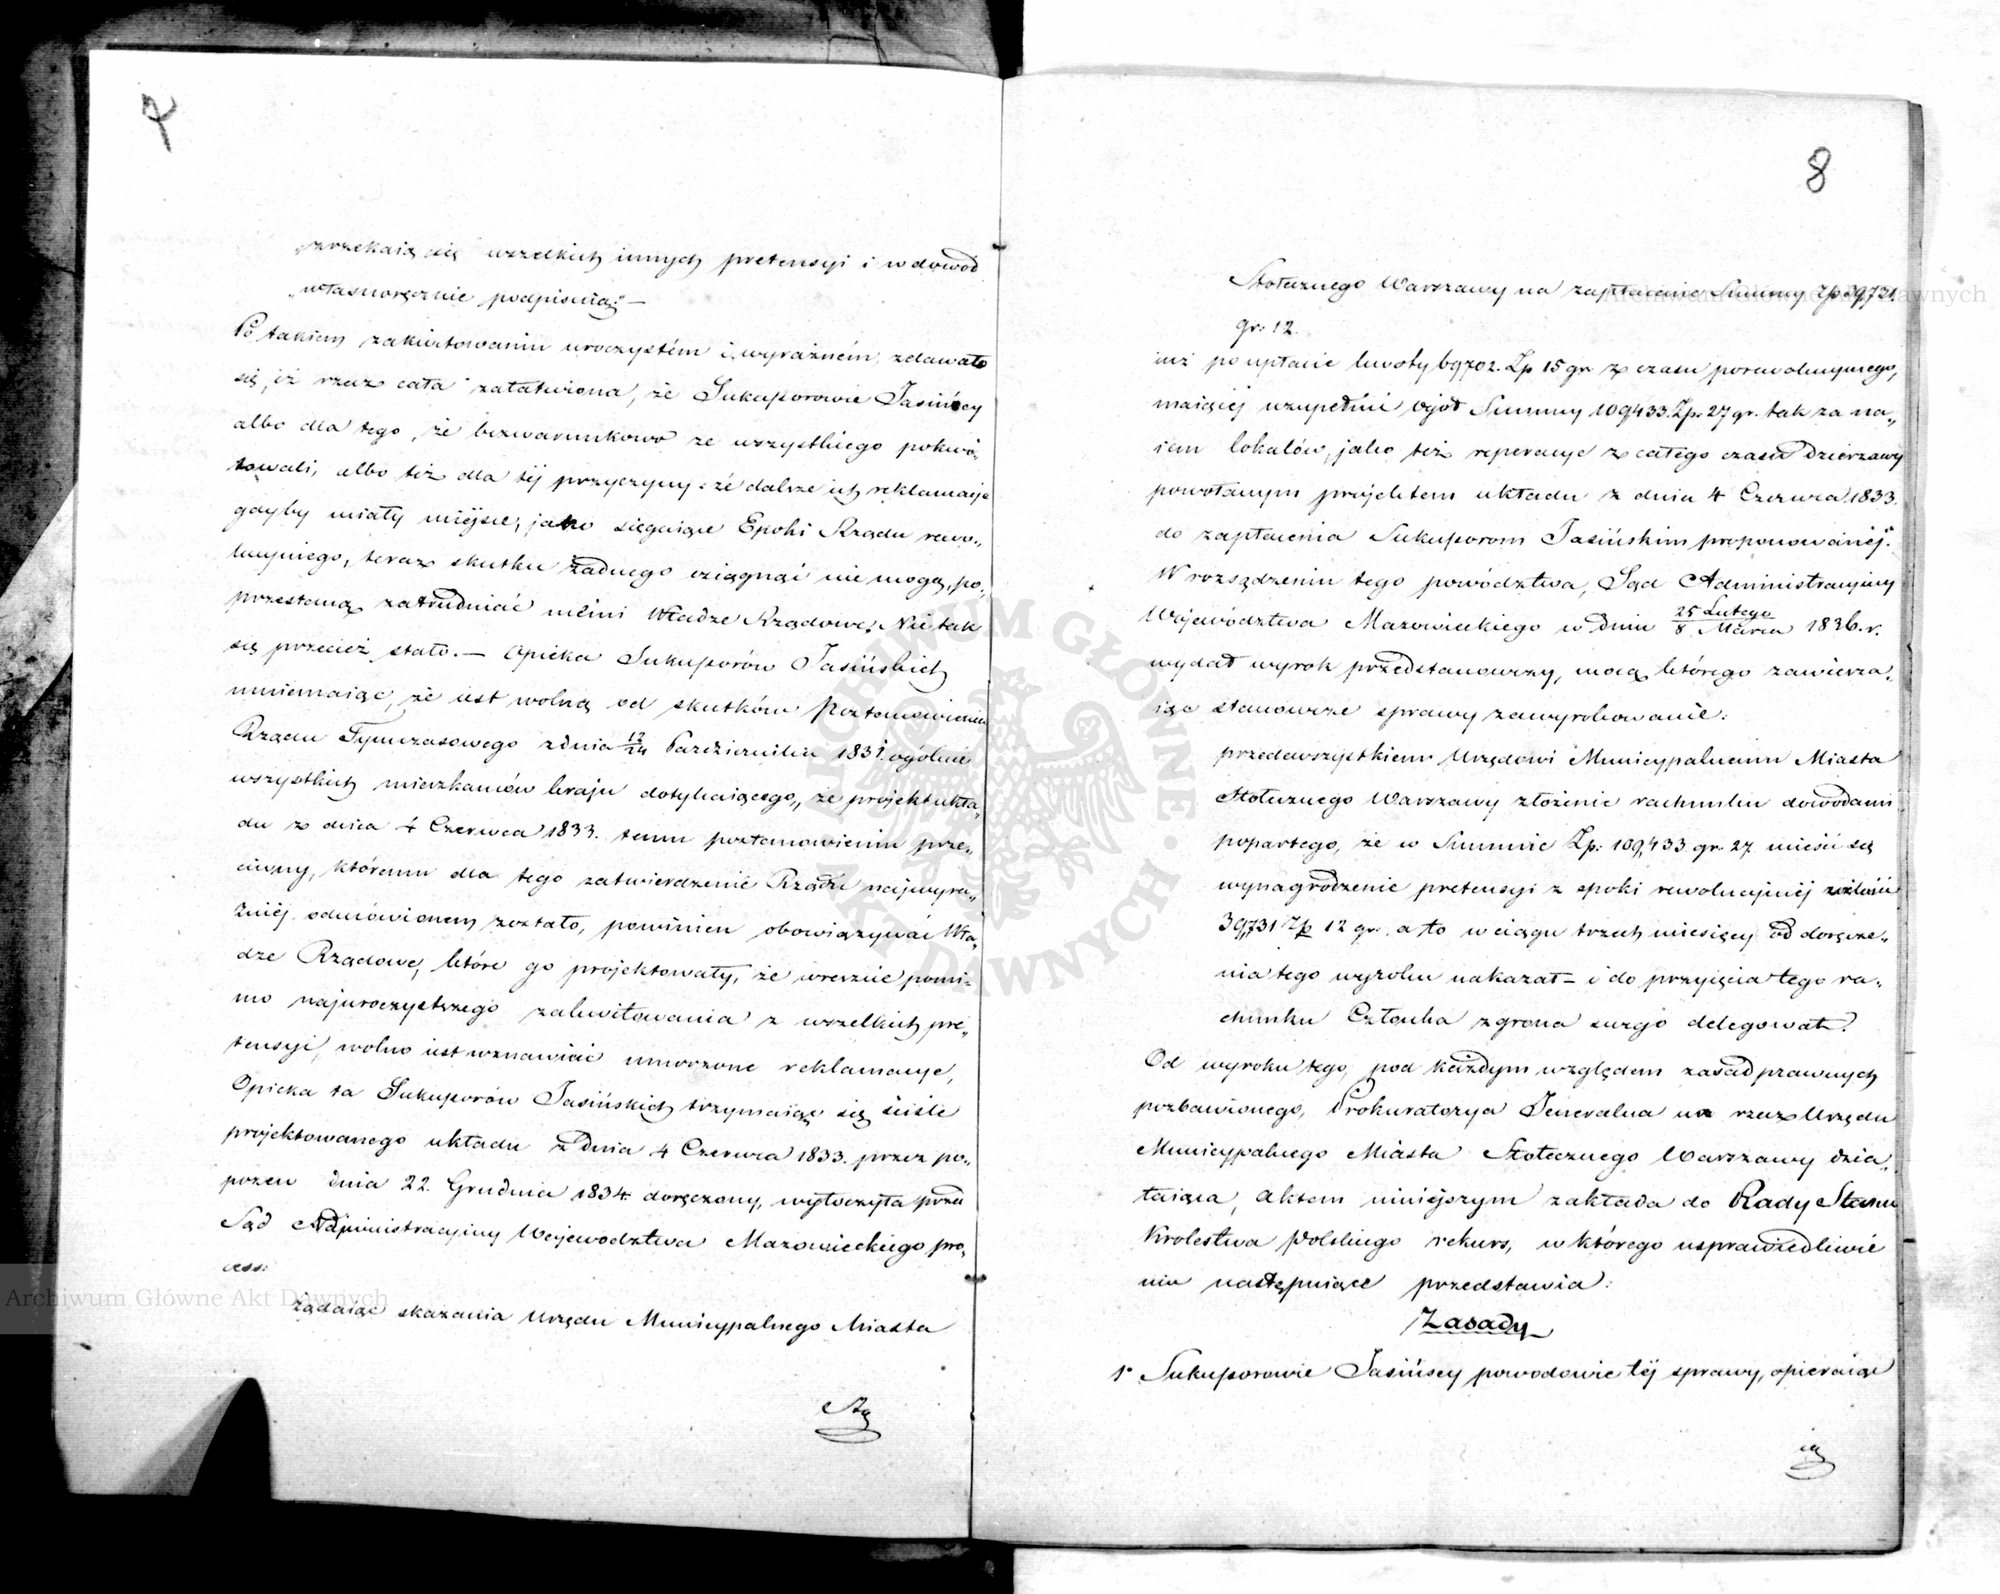 7
„zrzekaią się wszelkich innych pretensyi i w dowód
„własnoręcznie podpisuią" —
Po takiem zakwitowaniu uroczystém i wyraźném, zdawało
się, iż rzecz cała załatwiona, że Sukuporowie Jasińscy
albo dla tego, że bezwarunkowo ze wszystkiego pokwi„
towali, albo też dla tej przyczyny: że dalsze ich reklamacye
gdyby miały miejsce, jako sięgaiące Epoki Rządu rewo„
lucyjnego, teraz skutku żadnego osiągnąć nie mogą, po„
przestaną zatrudniać niémi Władze Rządowe. Nie tak
się przecież stało. — Opieka Sukuporów Jasińskich
mniemaiąc, że iest wolną od skutków Postanowienia
Rządu Tymczasowego z dnia 12/24 Października 1831. ogólnie
wszystkich mieszkańców kraju dotykaiącego, że projekt ukła„
du z dnia 4 Czerwca 1833. temu postanowieniu prze„
ciwny, któremu dla tego zatwierdzenie Rządu najwyra„
źniej odmówionem zostało, powinien obowiązywać Wła„
dze Rządowe, które go projektowały, że wreszcie pomi„
mo najuroczystszego zakwitowania z wszelkich pre„
tensyi, wolno iest wznawiać umorzone reklamacye,
Opieka ta Sukuporów Jasińskich trzymaiąc się ściśle
projektowanego układu z dnia 4 Czerwca 1833. przez po„
pozew dnia 22. Grudnia 1834 doręczony, wytoczyła przed
Sąd Administracyjny Województwa Mazowieckiego pro„
cess:
żądaiąc skazania Urzędu Municypalnego Miasta
8
Stołecznego Warszawy na zapłacenie Summy Zp 39,731.
gr. 12.
iuż po upłacie kwoty 69702. Zp 15 gr z czasu porewolucyjnego,
maiącej uzupełnić ogół Summy 109433. Zp. 27 gr. tak za na„
iem lokalów, jako też reperacye z całego czasu dzierżawy
powołanym projektem układu z dnia 4 Czerwca 1833.
do zapłacenia Sukuporom Jasińskim proponowanéj.
W rozsądzeniu tego powództwa, Sąd Administracyjny
Województwa Mazowieckiego w dniu 25 Lutego/8 Marca 1836. r.
wydał wyrok przedstanowczy, mocą którego zawiesza„
iąc stanowcze sprawy zawyrokowanie:
przedewszystkiem Urzędowi Municypalnemu Miasta
Stołecznego Warszawy złożenie rachunku dowodami
popartego, że w Summie Zp: 109,433 gr. 27 mieści się
wynagrodzenie pretensyi z epoki rewolucyjnéj w ilości
39,731 Zp 12 gr. a to w ciągu trzech miesięcy od doręcze„
nia tego wyroku nakazał — i do przyięcia tego ra„
chunku Członka z grona swego delegował.
Od wyroku tego, pod każdym względem zasad prawnych
pozbawionego, Prokuratorya Jeneralna na rzecz Urzędu
Municypalnego Miasta Stołecznego Warszawy dzia„
łaiąca, aktem niniejszym zakłada do Rady Stanu
Królestwa Polskiego rekurs, w którego usprawiedliwie
niu następuiące przedstawia:
Zasady
1° Sukuporowie Jasińscy powodowie téj sprawy, opieraiąc